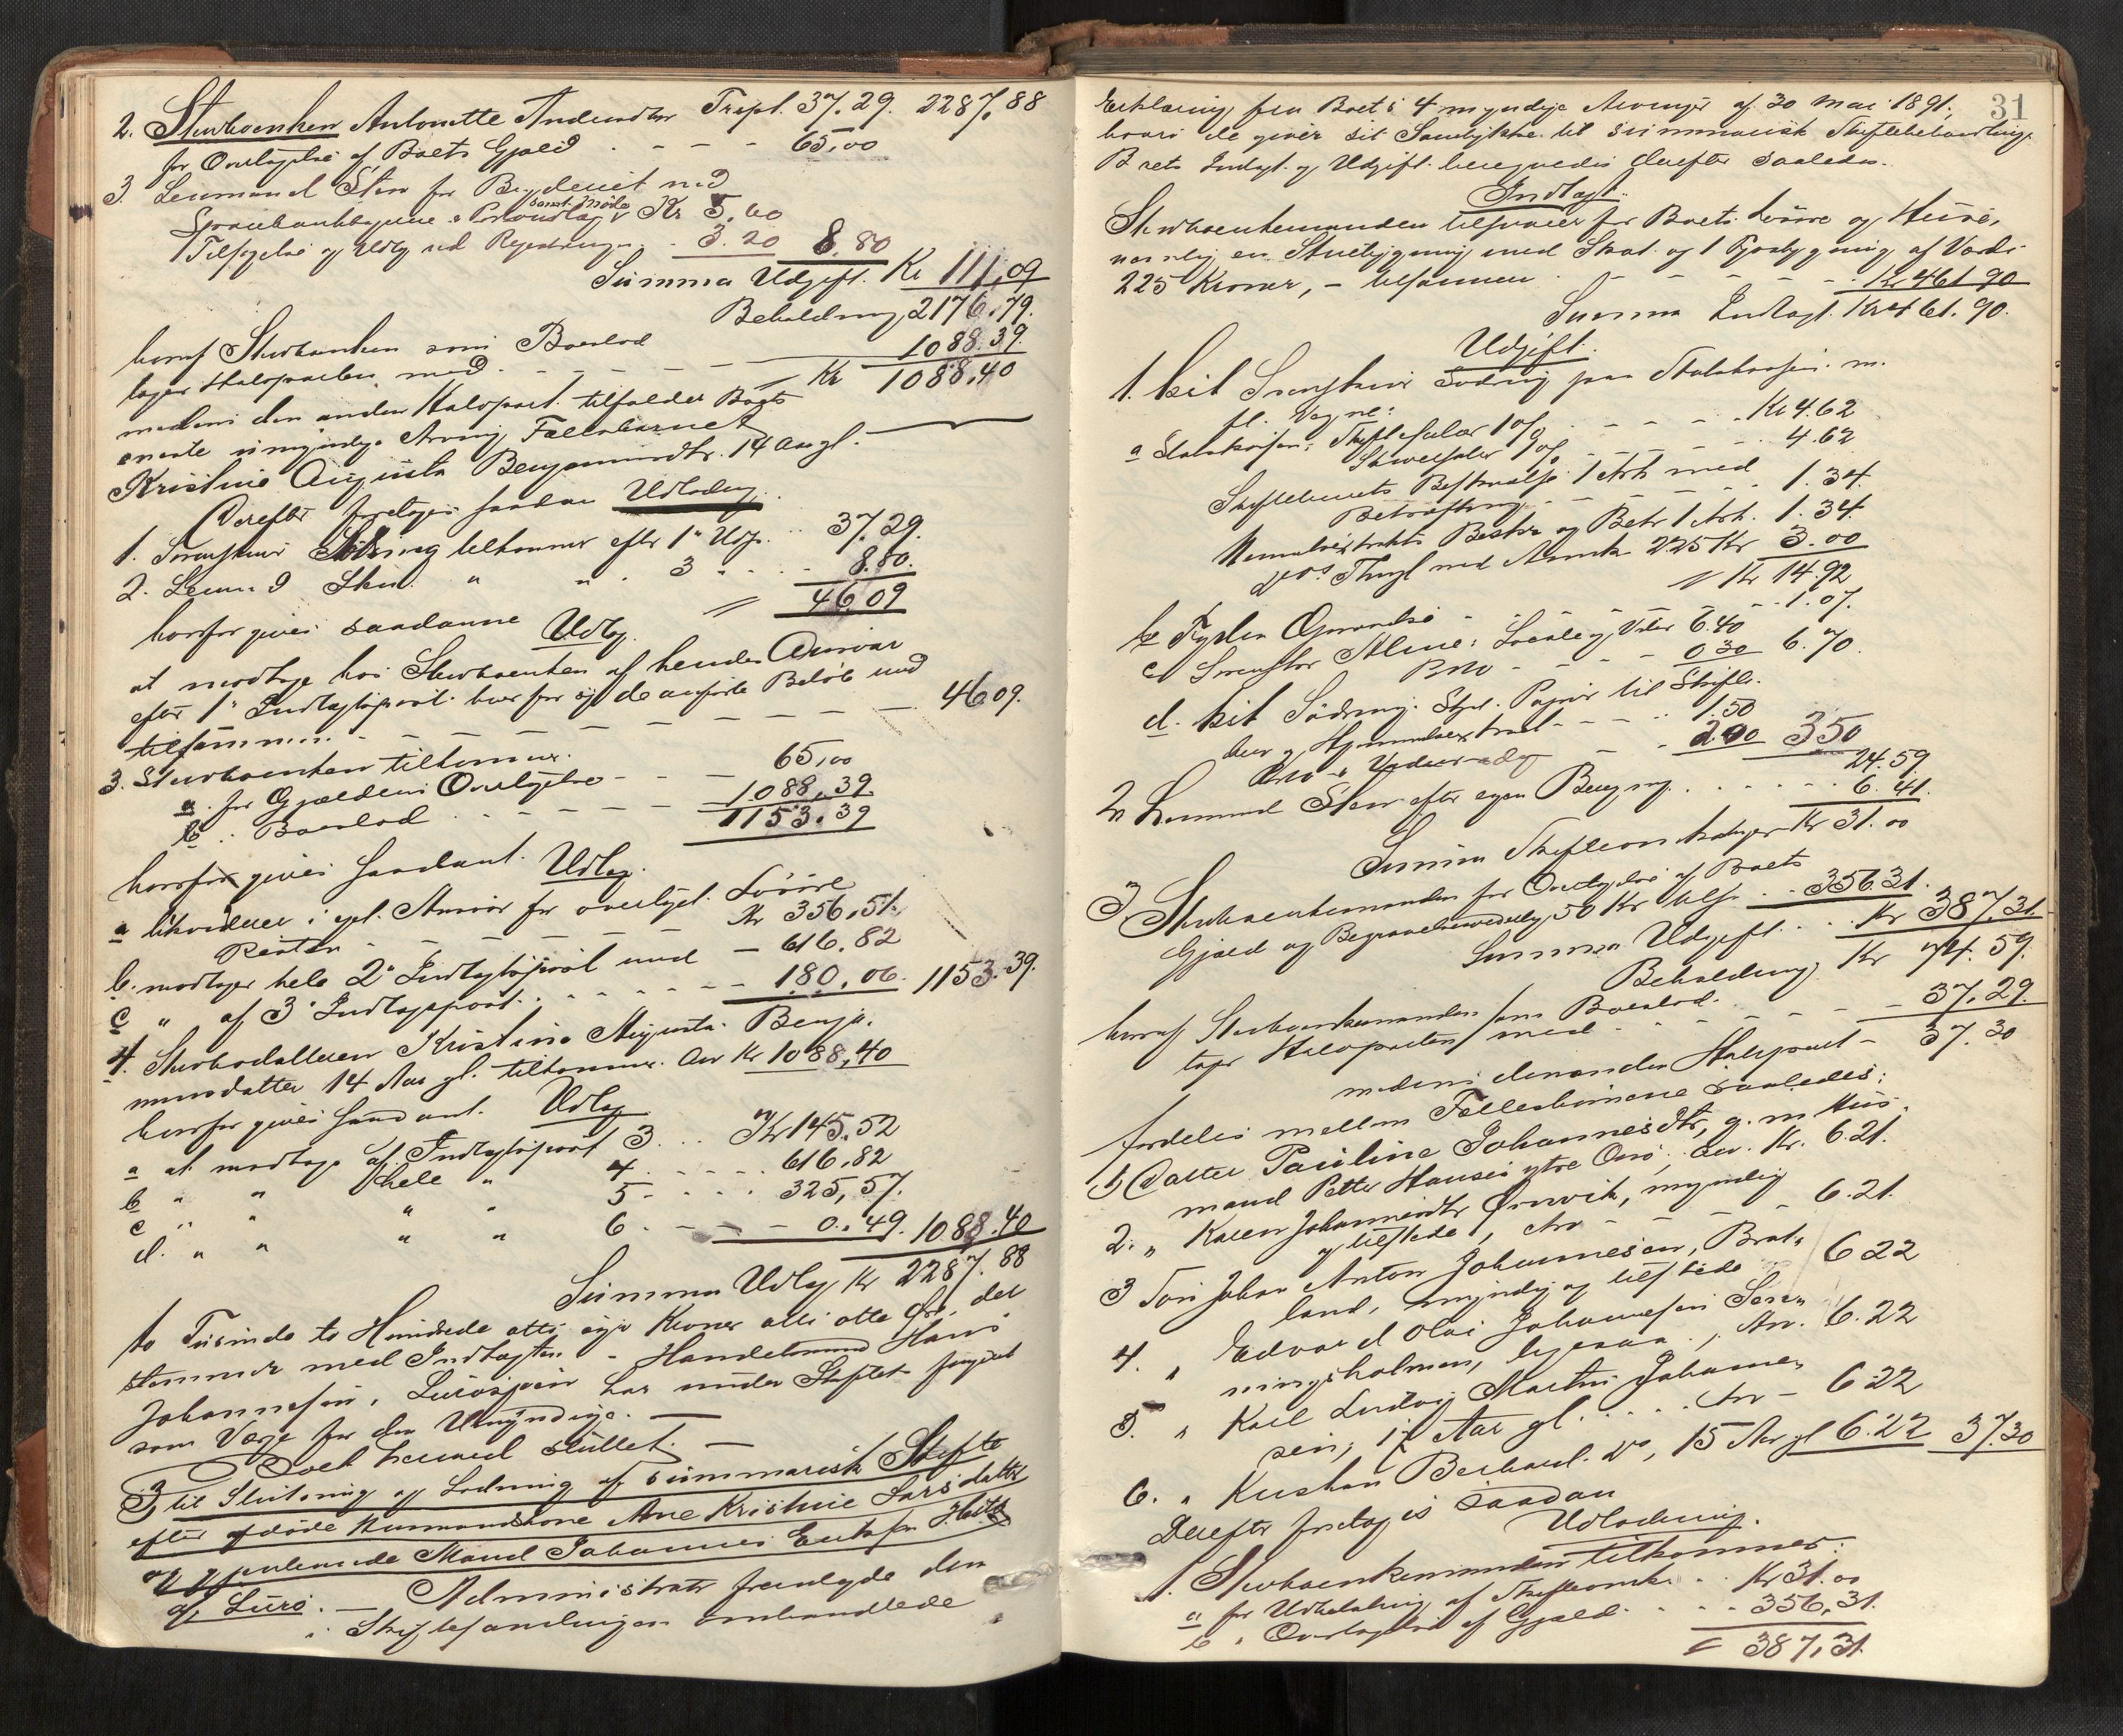 2. Sterboenken Antonette Andersdtr Trspt. 37.29. 2287.88
for Overtagelse af Boets Gjæld - - - 65,00
3. Lensmand Sten for Bryderiet med
samt Møde
Sparebankbøgerne Kr 5,60
Tilsigelse og Udlæg ved Registreringen - 3.20 8.80
Summa Udgift. Kr 111,09
Beholdning 2176.79.
hvoraf Sterboenken som Boeslod
tager Halvparten med - - - - - 1088.39.
medens den anden Halvpart tilfalder Boets Kr 1088,40
eneste umyndige Arving Fællesbarnet
Kristine Augusta Benjaminsdtr. 14 Aar gl.
Derefter foretages saadan Udlodning.
1. Sorenskriver Södring tilkommer efter 1ste Udg. .. 37.29.
2. Lensmd Sten " " 3 - - - 8.80.
46.09
hvorfor gives saadanne Udlæg.
at modtage hos Sterboenken af hendes Ansvar
efter 1ste Indtægtspost hver for sig de anførte Beløb med
tilsammen - - - - - - - - 46.09.
3. Sterboenken tilkommer.
a. for Gjældens Overtagelse - - - 65,00
b. Boeslod - - - - 1088,39.
1153.39
hvorfor gives saadant. Udlæg.
a likviderer i eget Ansvar for overtaget Lösöre
Resten - - - - - Kr 356,51.
b. modtager hele 2den Indtægtspost med - 616.82
c " af 3die Indtægtspost. - - - - 180,06. 1153.39.
4. Sterbodatteren Kristine Augusta Benja-
minsdatter 14 Aar gl. tilkommer Arv Kr 1088,40
hvorfor gives saadant. Udlæg
a at modtage af Indtægtspost 3. .. Kr 145.52
b " " hele " 4. - - - 616.82
c " " " " 5 - - - 325,57.
d. " " " " 6. - - - 0.49. 1088.40
Summa Udlæg Kr 2287.88
to Tusinde to Hundrede otti syv Kroner otti otte Øre, der
stemmer med Indtægten. - Handelsmand Hans
Johannesen, Luröspen har under Skiftet fungeret
som Værge for den Umyndige.
Boet hermed sluttet.
3, til Slutning og Lodning af summarisk Skifte
efter afdöde Husmandskone Ane Kristine Larsdatter
og gjenlevende Mand Johannes
af Lurö. - Administrator fremlagde den
i Skiftesamlingen omhandlede
31
Erklæring fra Boets 4 myndige Arvinger af 30 Mai 1891,
hvori de giver sit Samtykke til summarisk Skiftebehandling.
Boets Indtægt og Udgift beregnedes derefter saaledes.
Indtægt.
Sterboenkemanden tilsvarer for Boets Lösöre og Huse,
nemlig en Stuebygning med Skot og 1 Fjosbygning af Værdi
225 Kroner, - tilsammen - - - - - - Kr 461 90
Summa Indtægt Kr 461.90.
Udgift.
1. kst Sorenskriver Södring paa Statskassens m.
fl. Vegne:
a Statskassen: Skiftesalær 1% - - - - Kr 4.62
Skriversalær 1% - - - - 4.62
Skiftebrevets Beskrivelse 1 Ark med
Bekræftning - - - - - 1.34.
Hjemmelsextrakts Beskr og Bekr 1 Ark. 1.34.
do Thingl med Anmk 225 Kr 3.00
Kr 14.92
b - - 1.07.
c 6.40
0.30 6.70.
d. kst Södring: Stpl. Papir til Skifte-
brev og Hjemmelsextrakt - - - 1.50
- - 2.00 3.50
24.59
2, Lensmand Sten efter egen Beregng. - - - - 6.41.
Summa Skifteomkostninger Kr 31.00
3, Sterboenkemanden for Overtagelse af Boets
Gjæld og Begravelses 50 Kr tils. - - 356.31.
Summa Udgift. .. Kr 387.31
Beholdning Kr 74.59.
hvoraf Sterboenkemanden som Boeslod
tager Halvparten med - - - - - 37.29.
medens den anden Halvpart - 37.30
fordeles mellem Fællesbörnene saaledes:
1, Datter Pauline Johannesdtr, g. m. Hus-
mand Petter Hansen ytre Onö, Arv. Kr. 6.21.
2. " Karen Johannesdtr Örnvik, myndig
og tilstede, Arv - - - - 6.21.
3 Sön Johan Anton Johannesen, Brat-
land, myndig og tilstede 6 22
4. " Edvard Olai Johannesen Sen-
ningsholmen, ligesaa, Arv. 6.22
5. " Karl Ludvig Martin Johanne-
sen, 17 Aar gl. - - - Arv - 6.22
6. " Kristian Berhard. do, 15 Aar gl 6.22 37.30
Derefter foretages saadan
Udlodning.
1. Sterboenkemanden tilkommer:
a for Udbetaling af Skifteomk. - - Kr 31.00
b " Overtagelse af Gjæld. - - - 356,31.
387,31